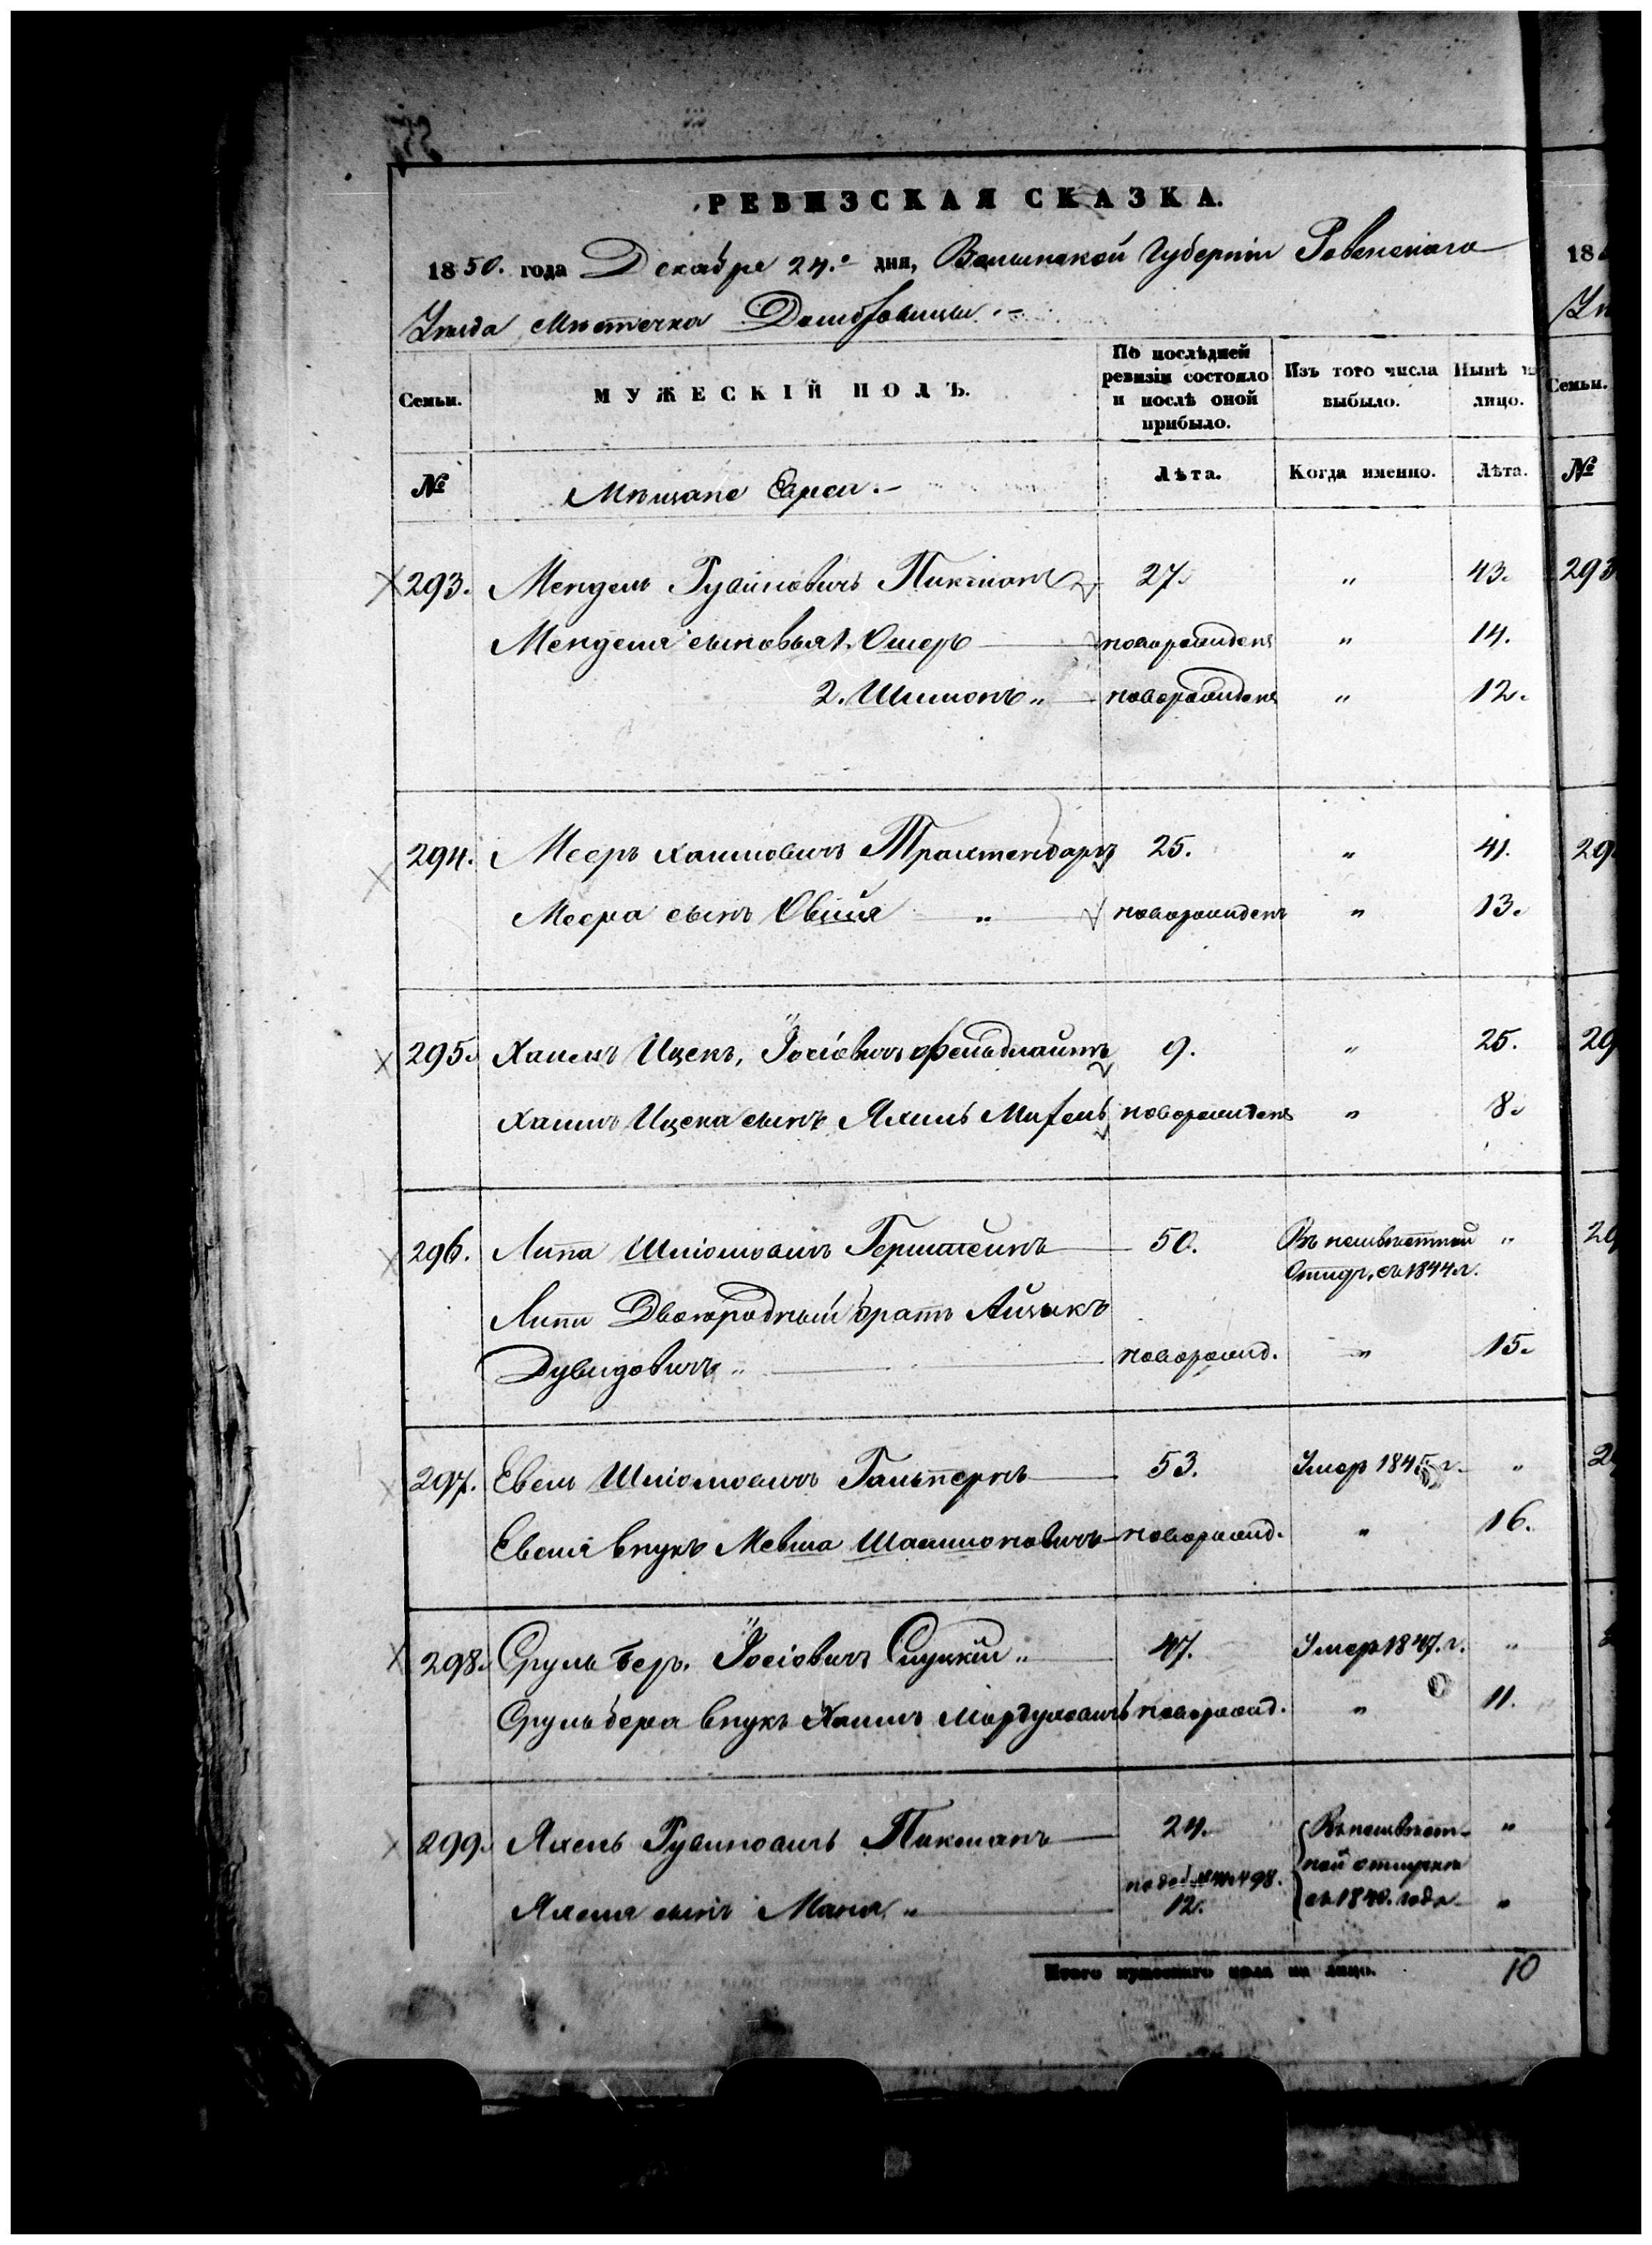 РЕВИЗСКАЯ СКАЗКА.
1850. года Декабря 24.го дня, Волынской Губерніи Ровенскаго
Уѣзда Мѣстечка Домбровицы.
Семьи.
МУЖЕСКІЙ ПОЛЪ.
По послѣдней ревизіи состояло и послѣ оной прибыло.
Изъ того числа выбыло.
Нынѣ на лицо.
Семьи.
№ Мѣщане Евреи. Лѣта. Когда именно. Лѣта. №
293. Мендель Рувиновичъ Пикманъ 27. " 43. 293
Менделя сыновья 1. Ошеръ новорожденъ " 14.
2. Шимонъ " новорожденъ " 12.
294. Мееръ Хаимовичъ Трахтенбаръ 25. " 41. 29
Меера сынъ Овшія " новорожденъ " 13.
295. Хаимъ Ицекъ, Іосіовичъ Фельдлайтъ 9. " 25. 29
Хаимъ Ицека сынъ Яхиль Михель новорожденъ " 8.
296. Липа Шліомовичъ Герштейнъ 50. Въ неизвѣстной "
Отлуч. съ 1844 г.
Липы Двоюродный братъ Айзыкъ
Дувидовичъ " новорожд. " 15.
297. Евель Шліомовичъ Гальпернъ 53. Умер 1845 г. "
Евеля внукъ Мевша Шлимоновичъ новорожд. " 16.
298. Сруль Беръ. Іосіовичъ Слуцкій " 47. Умер 1847. г. "
Сруль Бера внукъ Хаимъ Мордуховичъ новорожд. " 11.
299. Яхель Рувиновичъ Пикманъ 24. Въ неизвѣст- "
ной отлучкѣ
по доб. № 498.
Яхеля сынъ Маня " 12. съ 1840. года "
Итого мужескаго пола на лицо. 10